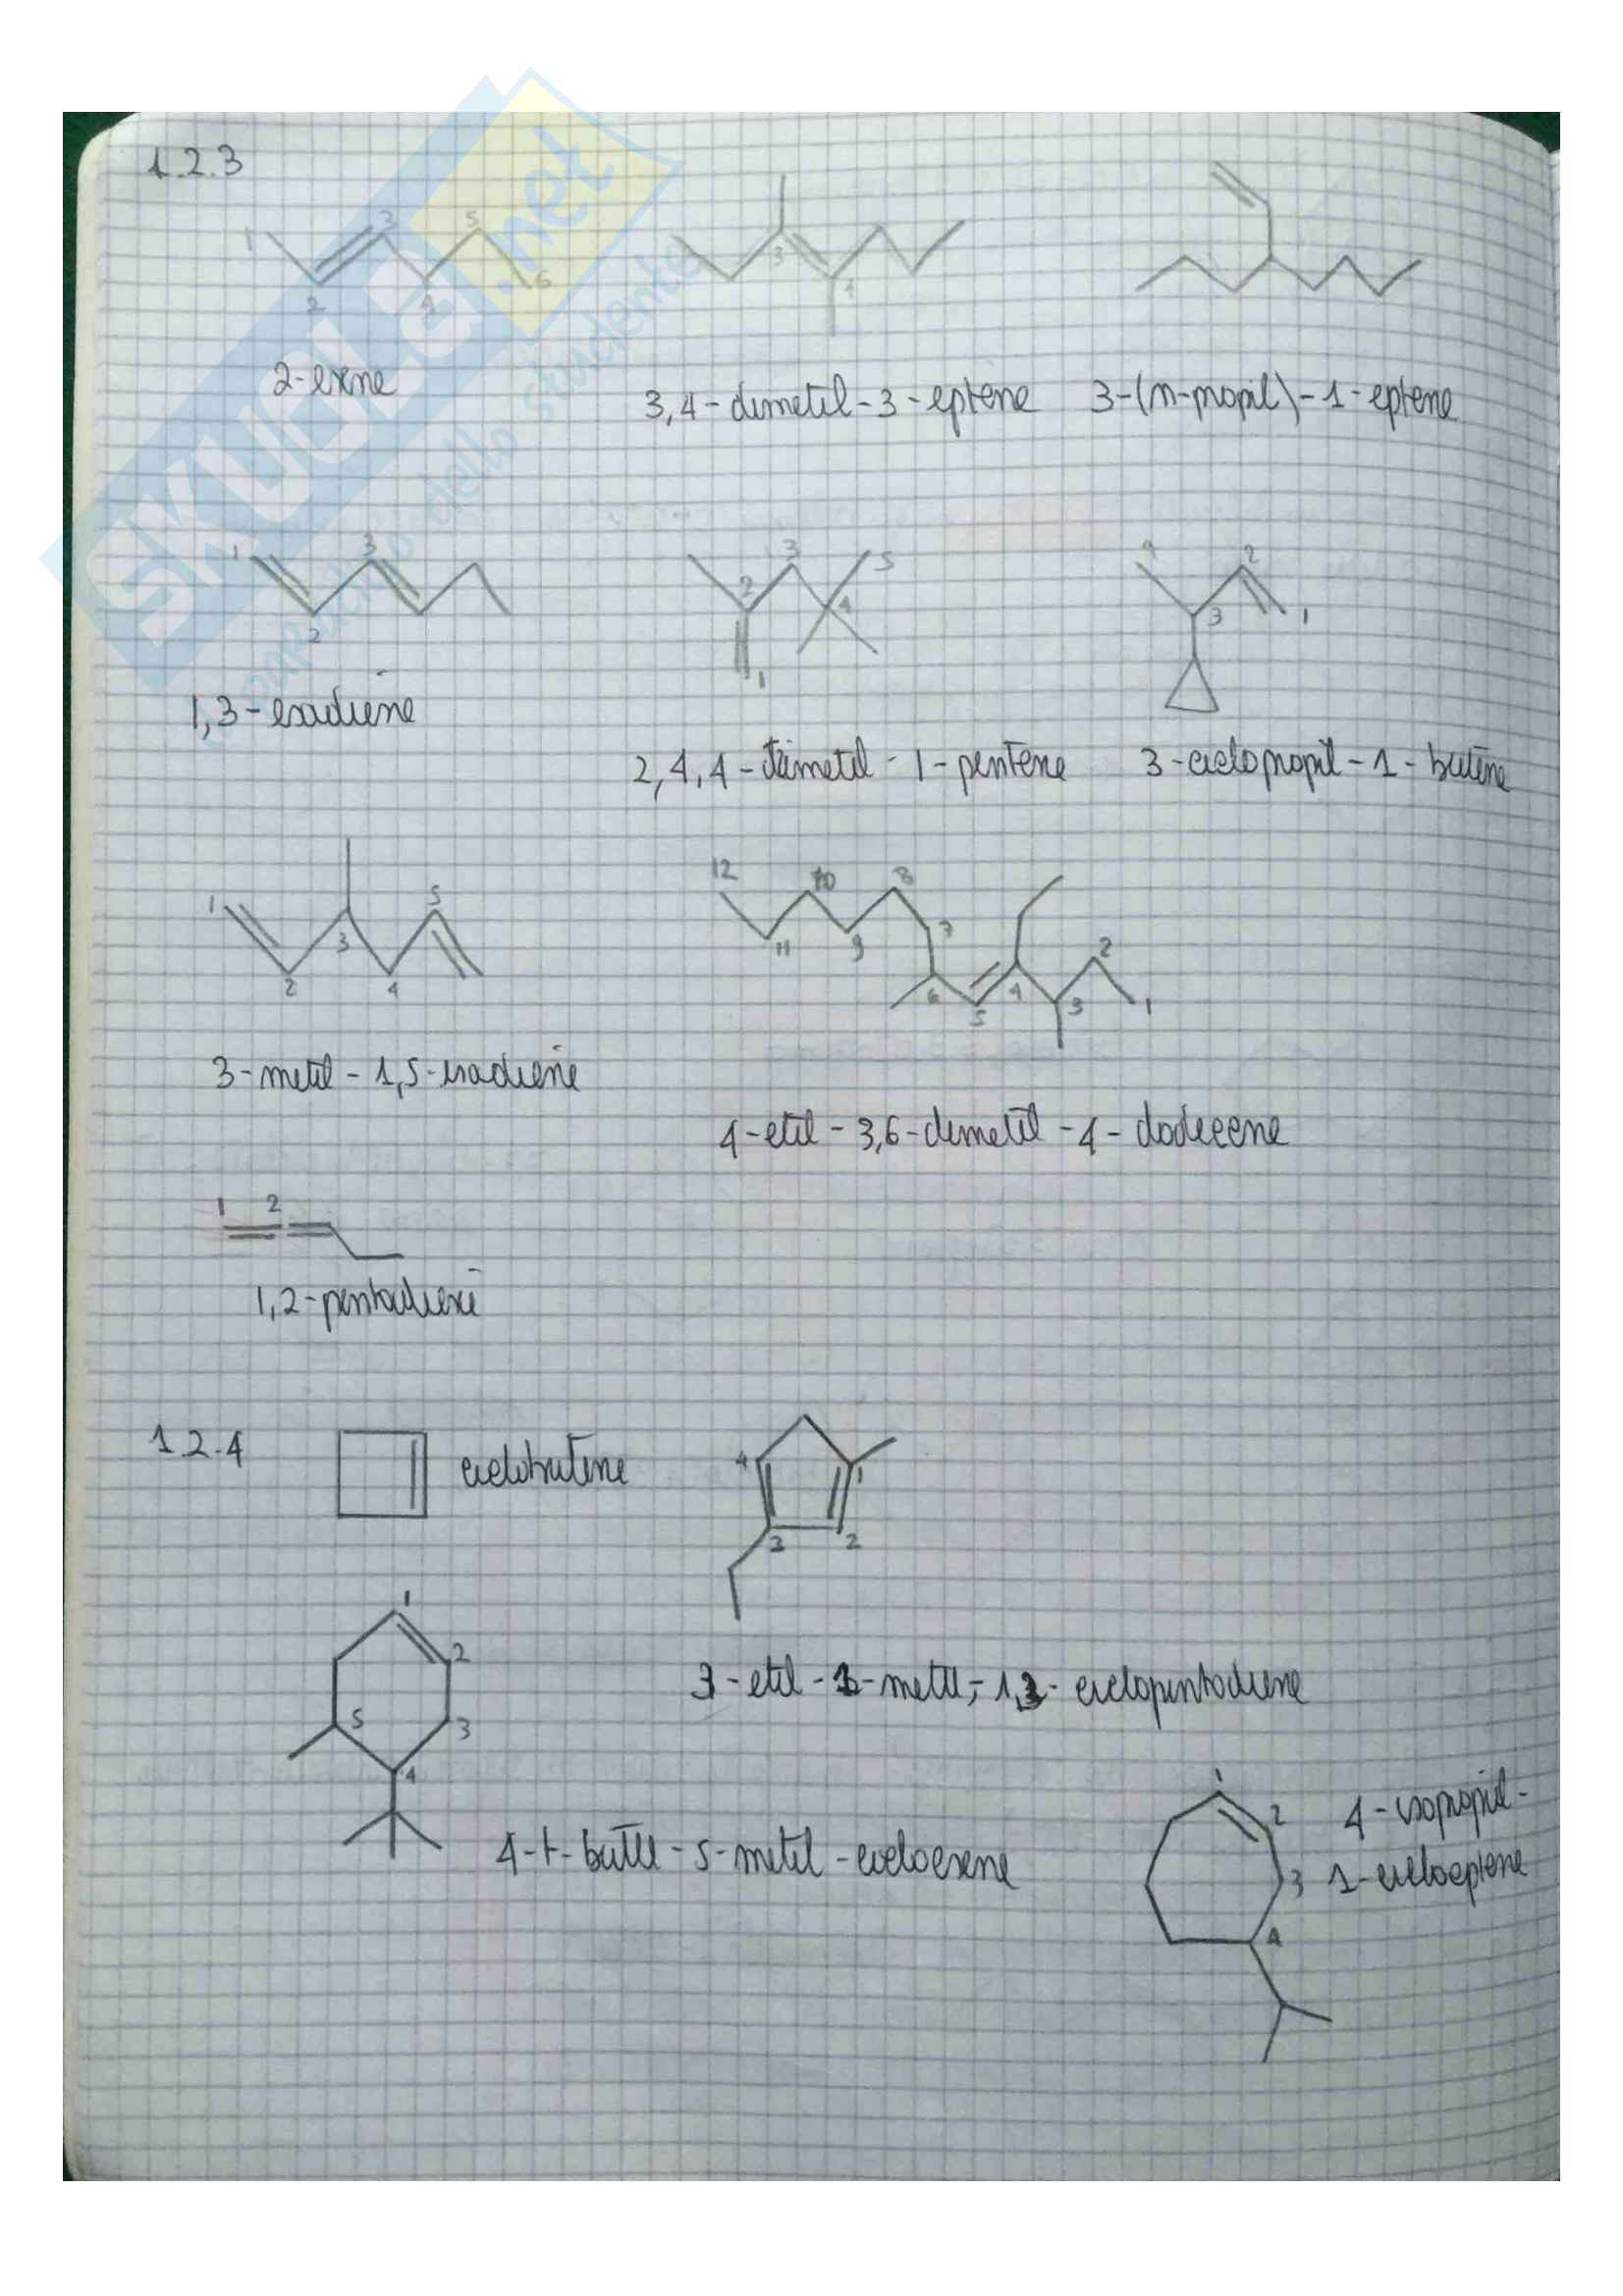 1.2.3
1 2 3 4 5 6
3 4
2-esene
3,4-dimetil-3-eptene
3-(n-propil)-1-eptene
1 2 3
1 2 3 4 5
1 2 3 4
1,3-esadiene
2,4,4-trimetil-1-pentene
3-ciclopropil-1-butene
1 2 3 4 5
12 11 10 9 8 7 6 5 4 3 2 1
3-metil-1,5-esadiene
4-etil-3,6-dimetil-4-dodecene
1 2
1,2-pentadiene
1.2.4
ciclobutene
4 1 3 2
1 2 3 4 5
3-etil-1-metil-1,3-ciclopentadiene
4-t-butil-5-metil-cicloesene
1 2 3 4
4-isopropil-
1-cicloeptene
SKUOLA.net
paradiso dello studente